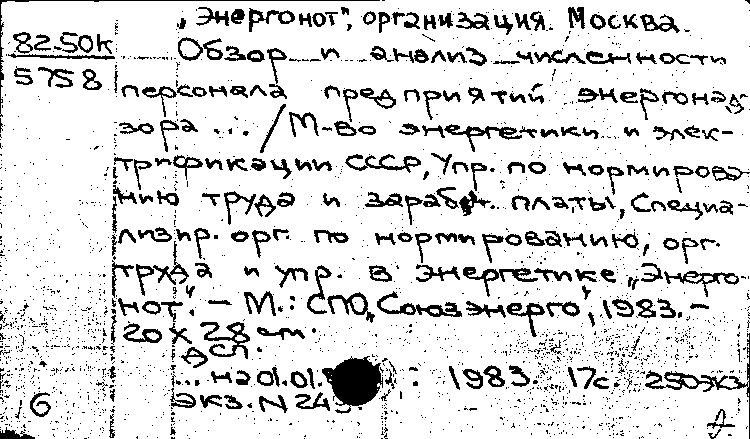 „Энергонот", организация. Москва.
82-50К
5758
Обзор и анализ численности
персонала предприятий энергонад
зора ... / М-во энергетики и элек-
трификации СССР, Упр. по нормирова-
нию труда и заработ. платы, Специа-
лизир. орг. по нормированию, орг.
труда и упр. в энергетике „Энерго-
нот". – М.: СПО „Союзэнерго", 1983. –
20 x 28 см.
ДСП.
... на 01.01. : 1983. 17с. 250экз.
экз. N 249.
6